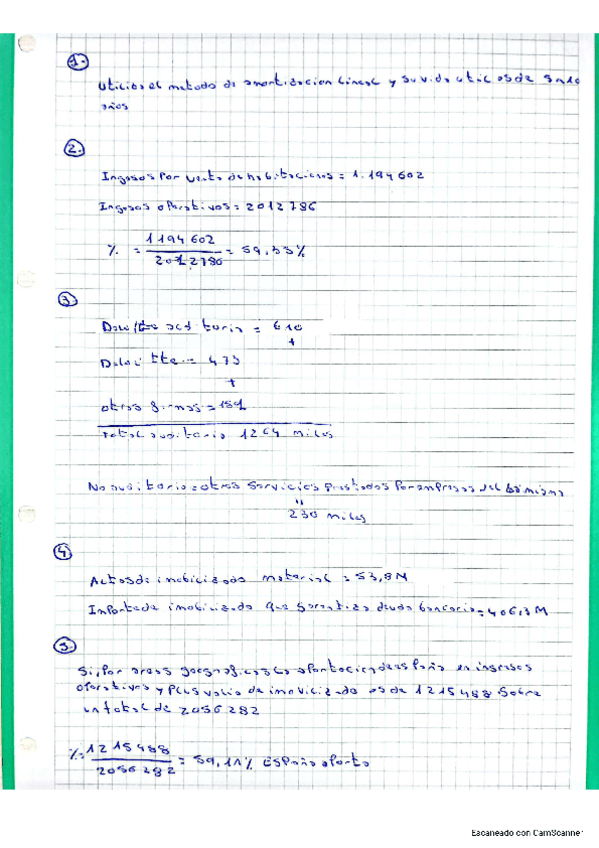 1.
Utiliza el metodo de amortizacion lineal y su vida util es de 3 a 10
años
2.
Ingresos por venta de habitaciones = 1.194602
Ingresos operativos = 2012786
% = 1194602 / 2012786 = 59,35%
3.
Deloitte auditoria = 610
+
Deloitte = 473
+
otras firmas = 181
Total auditoria 1264 miles
No auditoria = otros servicios prestados por empresas del
"
230 miles
4
Activos de inmobilizado material = 53,8M
Importe de inmobilizado que garantiza deuda bancaria = 406,3M
5.
Si, por areas geograficas la aportacion de españa en ingresos
operativos y plusvalia de inmovilizado es de 1215488 sobre
un total de 2056282
% = 1215488 / 2056282 = 59,11% España aporta
Escaneado con CamScanner